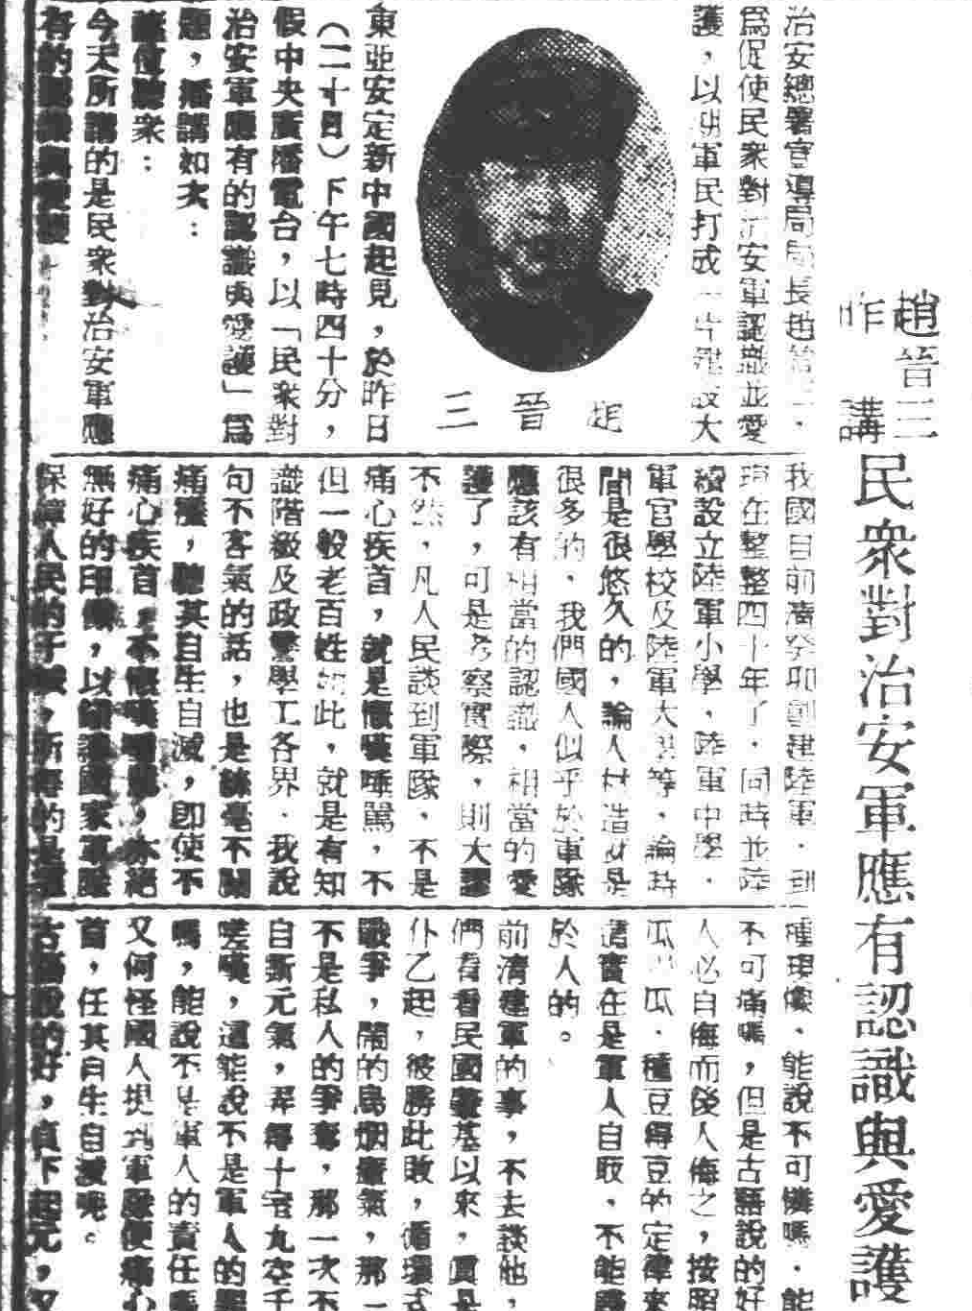 趙晉三
昨講
民衆對治安軍應有認識與愛護
治安總署宣導局局長趙晉三,
爲促使民衆對治安軍認識並愛
護,以期軍民打成一片建設大
趙晉三
東亞安定新中國起見,於昨日
(二十日)下午七時四十分,
假中央廣播電台,以「民衆對
治安軍應有的認識與愛護」爲
題,播講如次:
諸位聽衆:
今天所講的是民衆對治安軍應
有的認識與愛護
我國目前清癸卯創建陸軍,到
現在整整四十年了,同時並陸
續設立陸軍小學,陸軍中學,
軍官學校及陸軍大學等,論時
間是很悠久的,論人材造就是
很多的,我們國人似乎於軍隊
應該有相當的認識,相當的愛
護了,可是考察實際,則大謬
不然,凡人民談到軍隊,不是
痛心疾首,就是慨嘆唾罵,不
但一般老百姓如此,就是有知
識階級及政警學工各界,我說
句不客氣的話,也是絲毫不關
痛癢,聽其自生自滅,即使不
痛心疾首,不慨嘆唾罵,亦絕
無好的印像,以保護國家軍隊
保障人民的干城,所得的是這
種現像,能說不可憐嗎,能
不可痛嗎,但是古語說的好
人必自侮而後人侮之,按照
瓜得瓜,種豆得豆的定律來
這實在是軍人自取,不能
於人的。
前清建軍的事,不去談他,
們看看民國奠基以來,眞是
仆乙起,彼勝此敗,循環式
戰爭,鬧的烏烟瘴氣,那一
不是私人的爭奪,那一次不
自斲元氣,弄得十室九空千
嗟嘆,這能說不是軍人的
嗎,能說不是軍人的責任
又何怪國人提到軍隊便痛心
首,任其自生自滅呢。
古語說的好,貞下起元,又